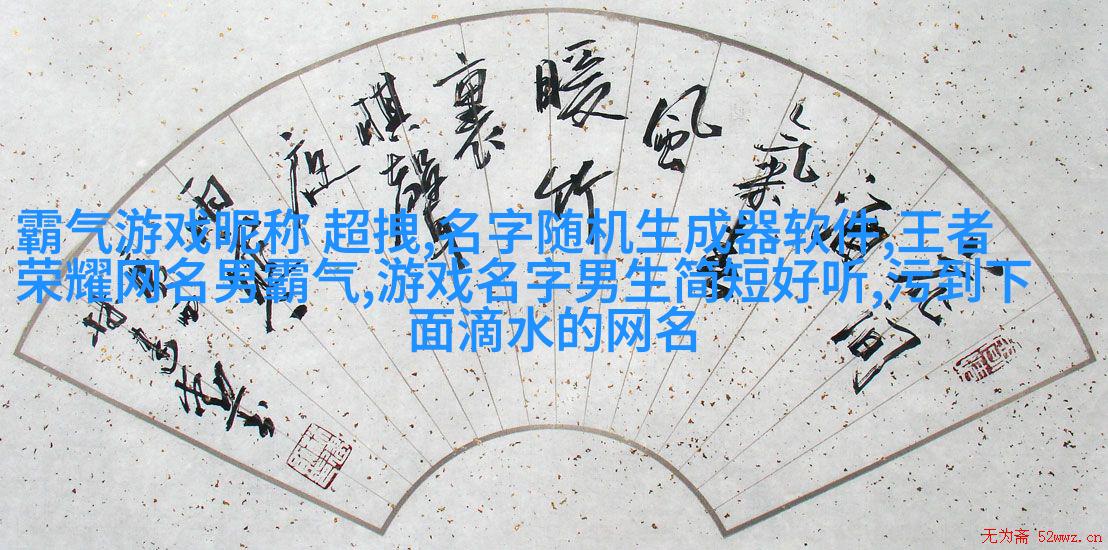 霸气游戏昵称 超拽,名字随机生成器软件,王者
荣耀网名男霸气,游戏名字男生简短好听,污到下
面滴水的网名
間
氣
風
暖竹
裏
棋聲
雨寒
无为斋 52wwz.cn